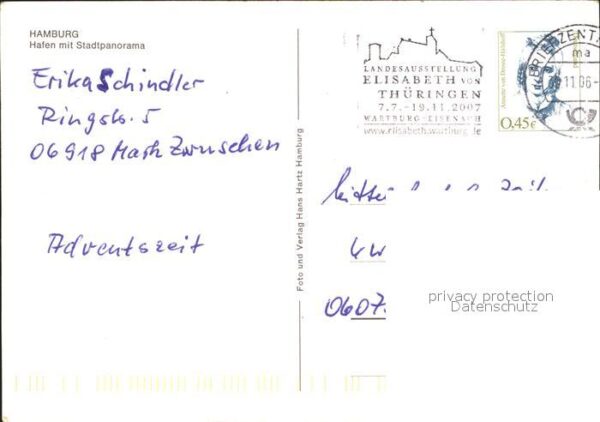 HAMBURG
Hafen mit Stadtpanorama
Erika Schindler
Ringstr. 5
06918 Mark Zwuschen
Adventszeit
Foto und Verlag Hans Hartz Hamburg
LANDESAUSSTELLUNG
ELISABETH VON
THÜRINGEN
7.7.-19.11.2007
WARTBURG-EISENACH
www.elisabeth.wartburg.de
0,45€
BRIEFZENTR
ma
11.06-
0607
privacy protection
Datenschutz